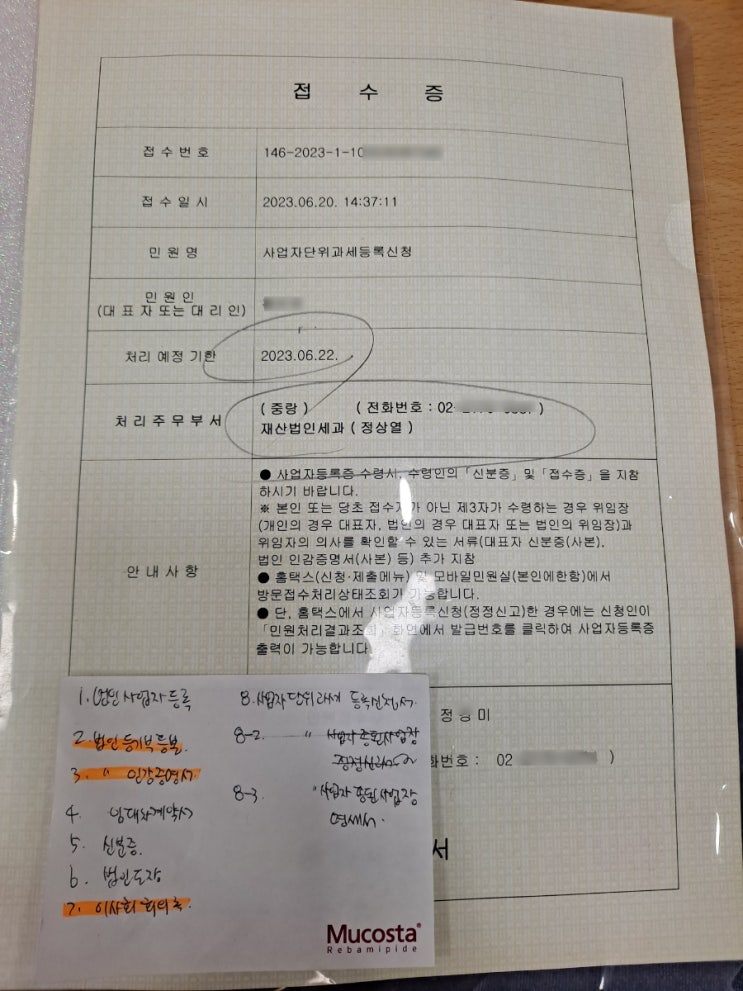 접 수 증
접 수 번 호 146-2023-1-10
접 수 일 시 2023.06.20. 14:37:11
민 원 명 사업자단위과세등록신청
민 원 인
(대 표 자 또는 대 리 인)
처리 예정 기한 2023.06.22.
( 중랑 ) ( 전화번호 : 02- )
처 리 주 무 부 서 재산법인세과 ( 정상열 )
안 내 사 항
● 사업자등록증 수령시, 수령인의 「신분증」 및 「접수증」 을 지참
하시기 바랍니다.
※ 본인 또는 당초 접수자가 아닌 제3자가 수령하는 경우 위임장
(개인의 경우 대표자, 법인의 경우 대표자 또는 법인의 위임장)과
위임자의 의사를 확인할 수 있는 서류(대표자 신분증(사본),
법인 인감증명서(사본) 등) 추가 지참
● 홈택스(신청·제출메뉴) 및 모바일민원실(본인에한함)에서
방문접수처리상태조회가 가능합니다.
● 단, 홈택스에서 사업자등록신청(정정신고)한 경우에는 신청인이
「민원처리결과조회」 화면에서 발급번호를 클릭하여 사업자등록증
출력이 가능합니다.
정 미
화번호 : 02 )
서
1. 법인사업자등록
2. 법인등기부등본.
3. " 인감증명서
4. 임대차계약서
5. 신분증.
6. 법인도장
7. 이사회 회의록.
8. 사업자단위과세 등록신청서.
8-2. " 사업자 종된사업장
8-3. " 사업자 종된사업장
명세서.
Mucosta®
Rebamipide